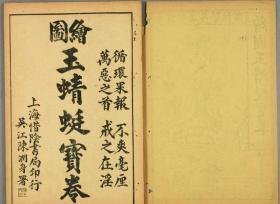 循環果報 不爽毫厘
萬惡之首 戒之在淫
繪圖
玉蜻蜓寶卷
上海惜陰書局印行
吳江陳潤身署